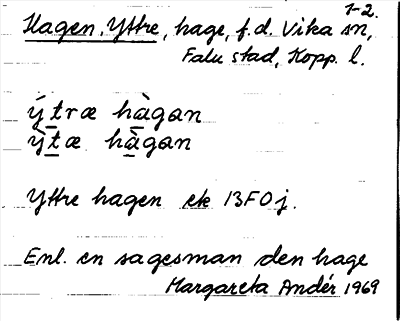 1-2.
Hagen, Yttre, hage, f.d. Vika sn,
Falu stad, Kopp. l.
ýtræ hàgan
ỳtæ hàgan
Yttre hagen ek 13F0j.
Enl. en sagesman den hage
Margareta Andér 1969